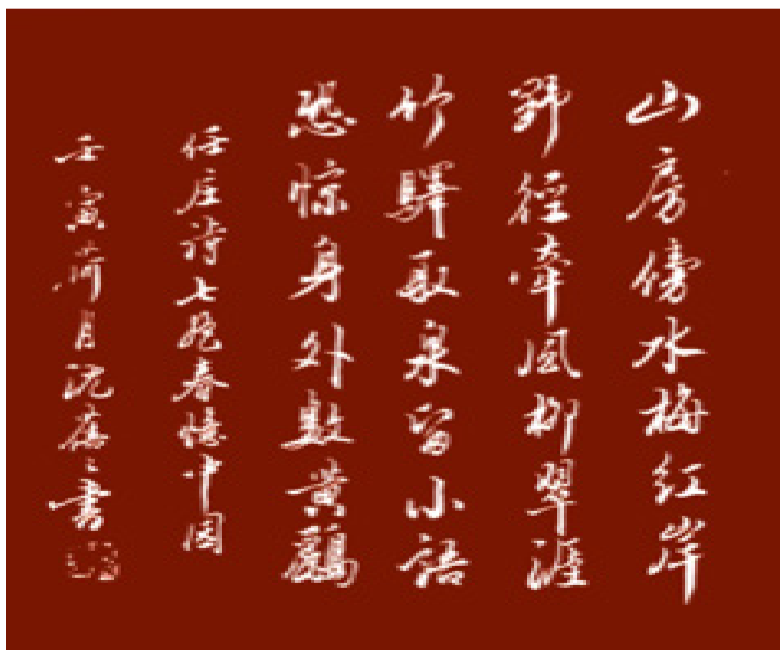 山房傍水梅红岸
野徑牽風柳翠涯
竹驛取泉留小語
恐惊身外数黄鸝
任庄詩七绝春憶中国
壬寅荷月沈蓓蓓書